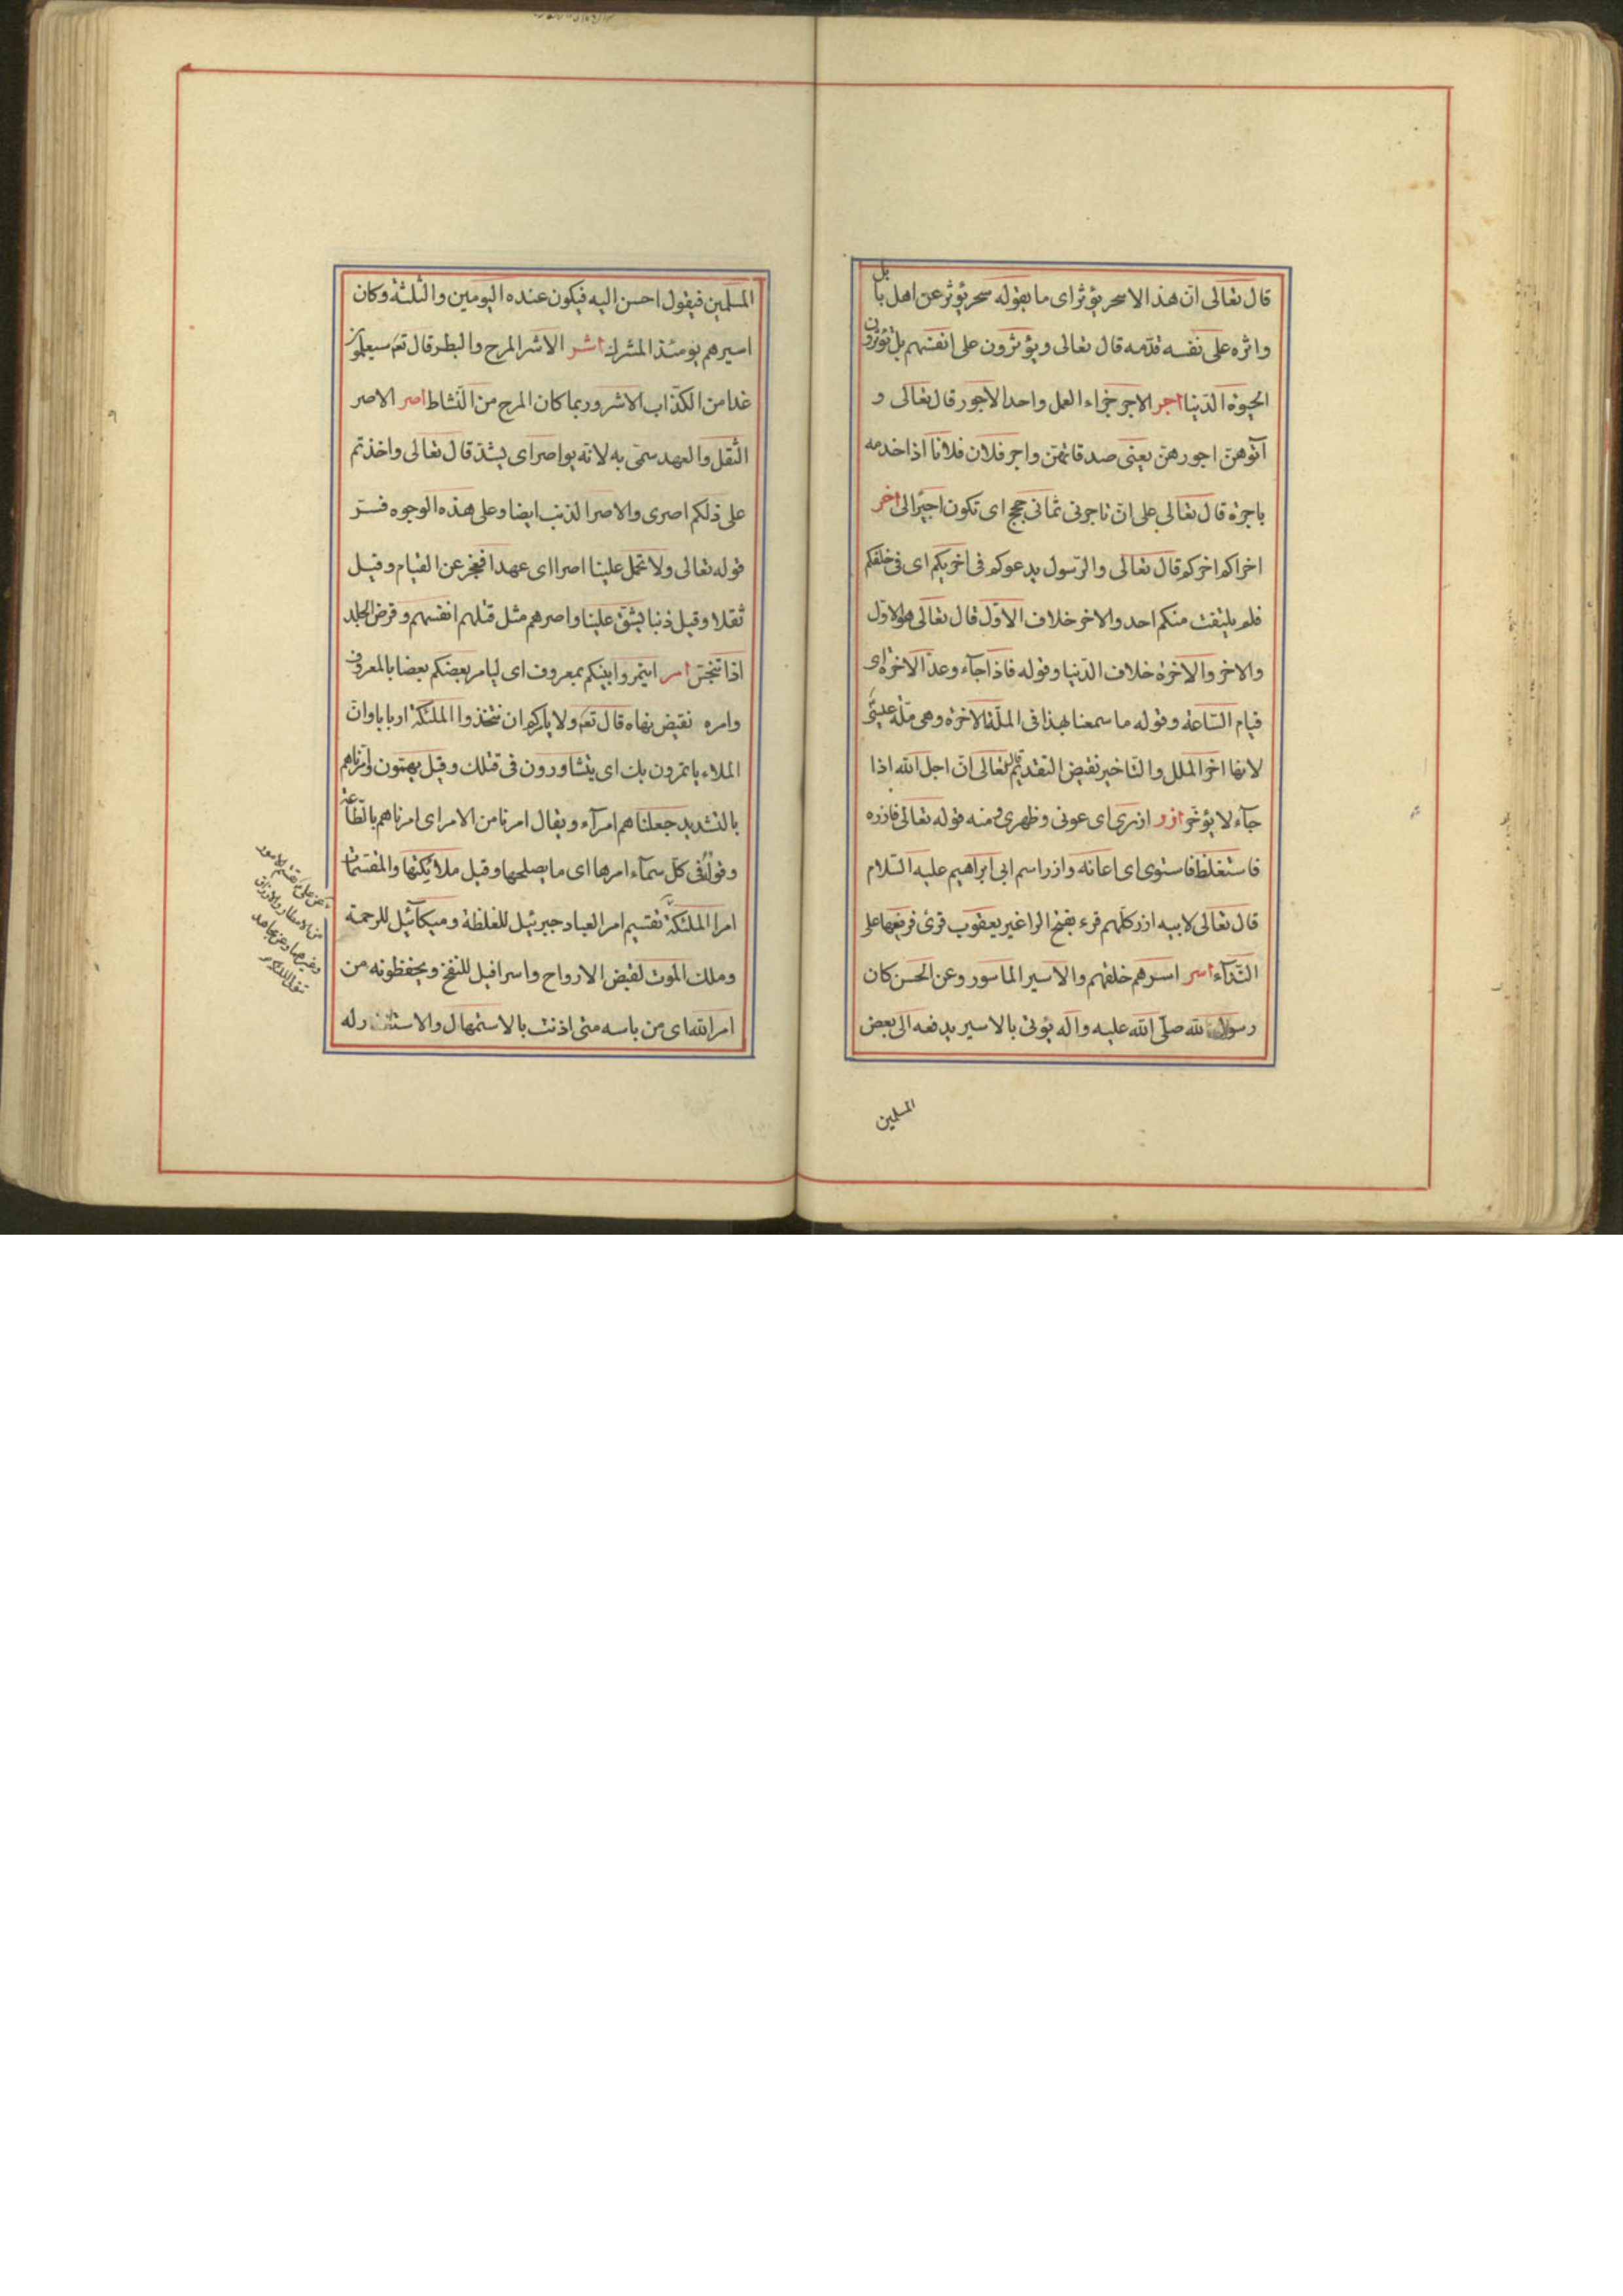 قال تعالى ان هذا الا سحر يؤثر اى ما يقوله سحر يؤثر عن اهل بابل
واثره على نفسه قدمه قال تعالى ويؤثرون على انفسهم بل تؤثرون
الحيوة الدنيا اجر الاجر جزاء العمل واحد الاجور قال تعالى و
آتوهن اجورهن يعنى صدقاتهن واجر فلان فلانا اذا خدمه
باجرة قال تعالى على ان تاجرنى ثمانى حجج اى تكون اجيرا لى اخر
اخراكم اخركم قال تعالى والرسول يدعوكم فى اخريكم اى فى خلفكم
فلم يلتفت منكم احد والاخر خلاف الاول قال تعالى هو الاول
والاخر والاخرة خلاف الدنيا وقوله فاذا جآء وعد الاخرة اى
قيام الساعة وقوله ما سمعنا بهذا فى الملة الاخرة وهى ملة عيسى
لانها اخر الملل والتاخير نقيض التقديم قال تعالى ان اجل الله اذا
جآء لا يؤخر ازر ازرى اى عونى وظهرى ومنه قوله تعالى فازره
فاستغلظ فاستوى اى اعانه وازر اسم ابى ابراهيم عليه السلام
قال تعالى لابيه ازر كلهم قرء بفتح الرا غير يعقوب قرئ فرفعها على
النداء اسر اسرهم خلقهم والاسير الماسور وعن الحسن كان
رسول الله صلى الله عليه واله يؤتى بالاسير يدفعه الى بعض
المسلمين
المسلمين فيقول احسن اليه فيكون عنده اليومين والثلثة وكان
اسيرهم يومئذ المشرك اشر الاشر المرح والبطر قال تعم سيعلمون
غدا من الكذاب الاشر وربما كان المرح من النشاط اصر الاصر
الثقل والعهد سمى به لانه يواصر اى يشد قال تعالى واخذتم
على ذلكم اصرى والاصر الذنب ايضا وعلى هذه الوجوه فسر
قوله تعالى ولا تحمل علينا اصرا اى عهدا فنعجز عن القيام وقيل
ثقلا وقيل ذنبا يشق علينا واصرهم مثل قتلهم انفسهم وقرض الجلد
اذا تنجس امر ايتمروا بينكم بمعروف اى ليامر بعضكم بعضا بالمعروف
وامره نقيض نهاه قال تعم ولا يامركم ان تتخذوا الملئكة اربابا وان
الملاء ياتمرون بك اى يتشاورون فى قتلك وقيل يهتمون وامرناهم
بالتشديد جعلناهم امرآء ويقال امرنا من الامر اى امرناهم بالطاعة
وقوله فى كل سمآء امرها اى ما يصلحها وقيل ملائكتها والمقسمات
امرا الملئكة تقسيم امر العباد جبرئيل للغلظة وميكآئيل للرحمة
وملك الموت لقبض الارواح واسرافيل للنفخ ويحفظونه من
امر الله اى من باسه متى اذنب بالاستمهال والاستغفار له
تقسم الامور
من الامطار والارزاق
وغيرها وعن مجاهد